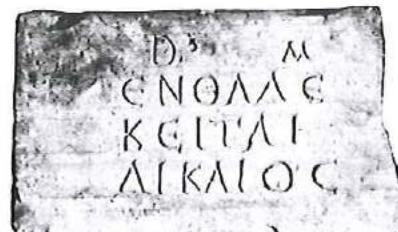 D M
ЄΝΘΑΔЄ
ΚЄΙΤΑΙ
ΔΙΚΑΙΟС